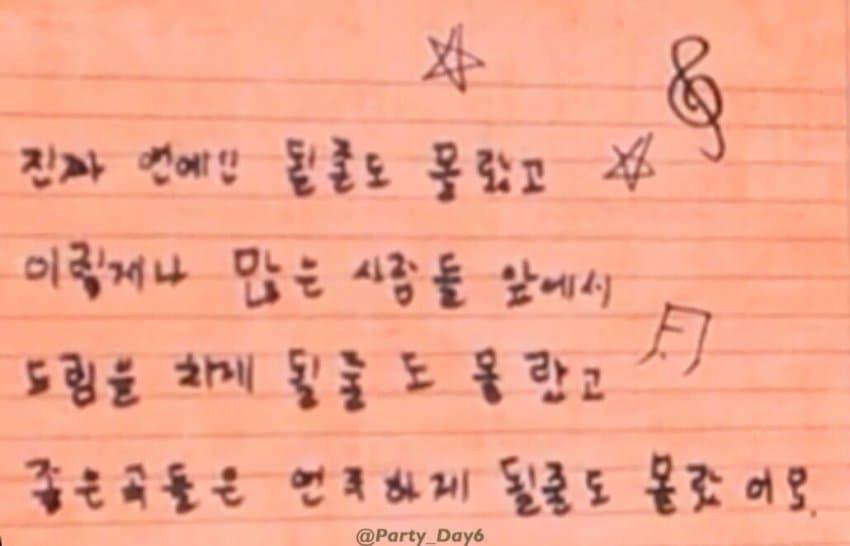 진짜 연예인 될줄도 몰랐고
이렇게나 많은 사람들 앞에서
드럼을 치게 될줄도 몰랐고
좋은곡들은 연주하게 될줄도 몰랐어요.
@Party_Day6